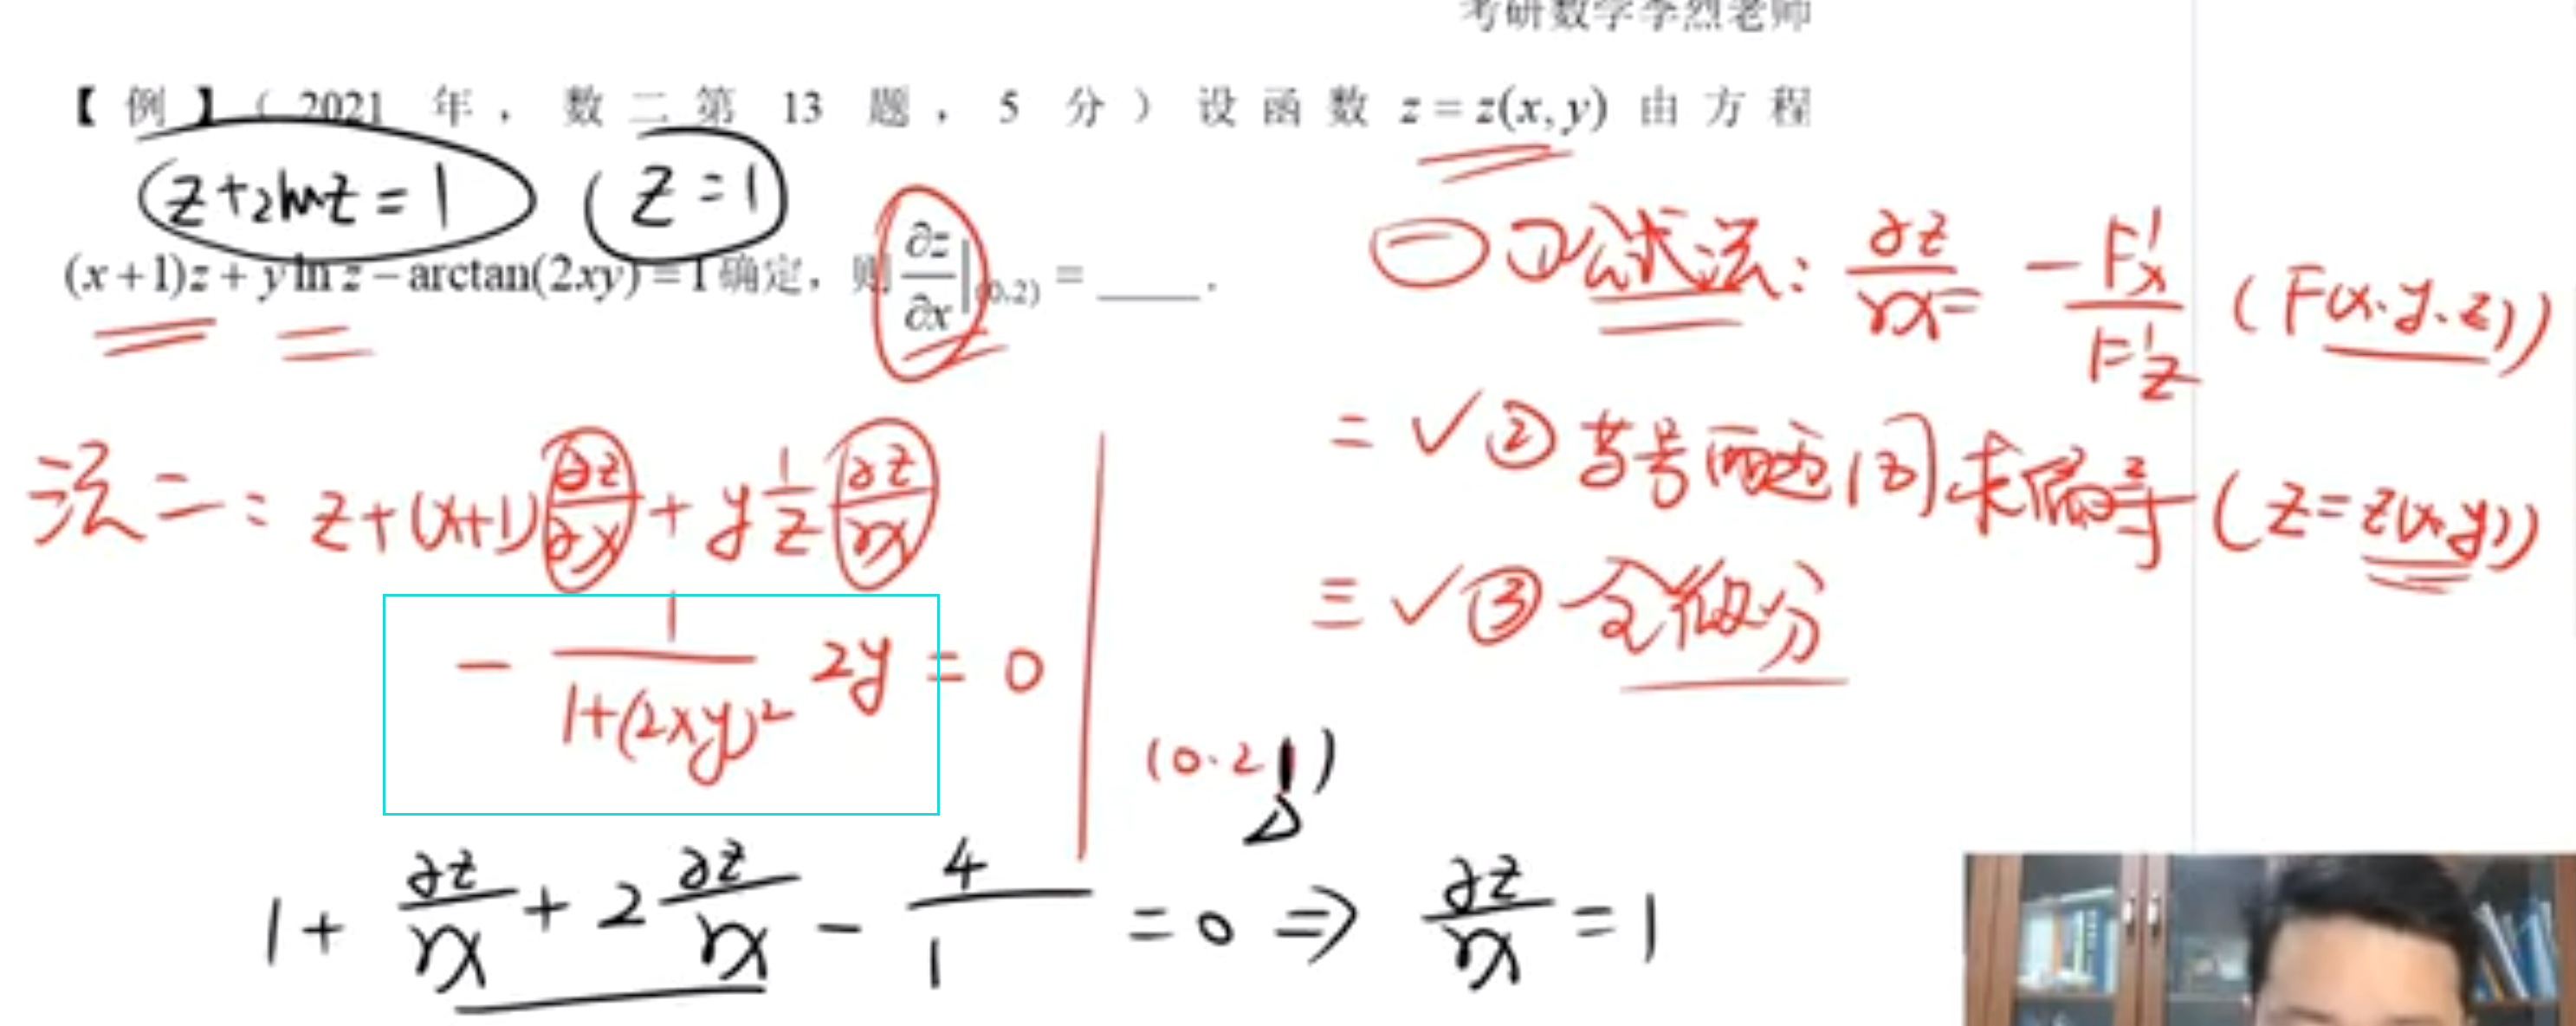 考研数学李烈老师
【例】（2021 年，数二第 13 题，5 分）设函数 z = z(x, y) 由方程
z+2lnz = 1 ( z = 1 )
(x+1)z + y ln z − arctan(2xy) = 1 确定，则 ∂z/∂x|(0,2) = ____.
一 ① 公式法: ∂z/∂x = − F'x / F'z (F(x.y.z))
二 ✓ ② 等号两边同求偏导 (z = z(x,y))
三 ✓ ③ 全微分
法二: z+(x+1) ∂z/∂x + y 1/z ∂z/∂x
− 1/(1+(2xy)²) 2y = 0
(0.2 1)
1 + ∂z/∂x + 2 ∂z/∂x − 4/1 = 0 ⇒ ∂z/∂x = 1